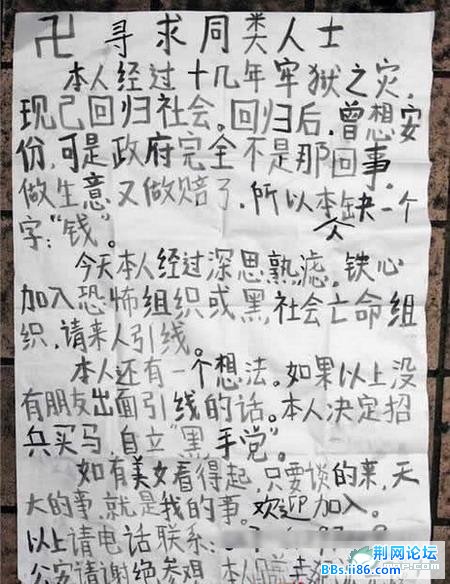 卍 寻求同类人士
本人经过十几年牢狱之灾,
现已回归社会。回归后,曾想安
份,可是政府完全不是那回事,
做生意又做赔了,所以本人缺一个
字:“钱”。
今天本人经过深思熟虑,铁心
加入恐怖组织或黑社会亡命组
织,请来人引线。
本人还有一个想法。如果以上没
有朋友出面引线的话。本人决定招
兵买马,自立“黑手党”。
如有美女看得起,只要谈的来,天
大的事,就是我的事。欢迎加入。
以上请电话联系:
公安请谢绝参观,本人
荆网论坛
BBs.iI86.com